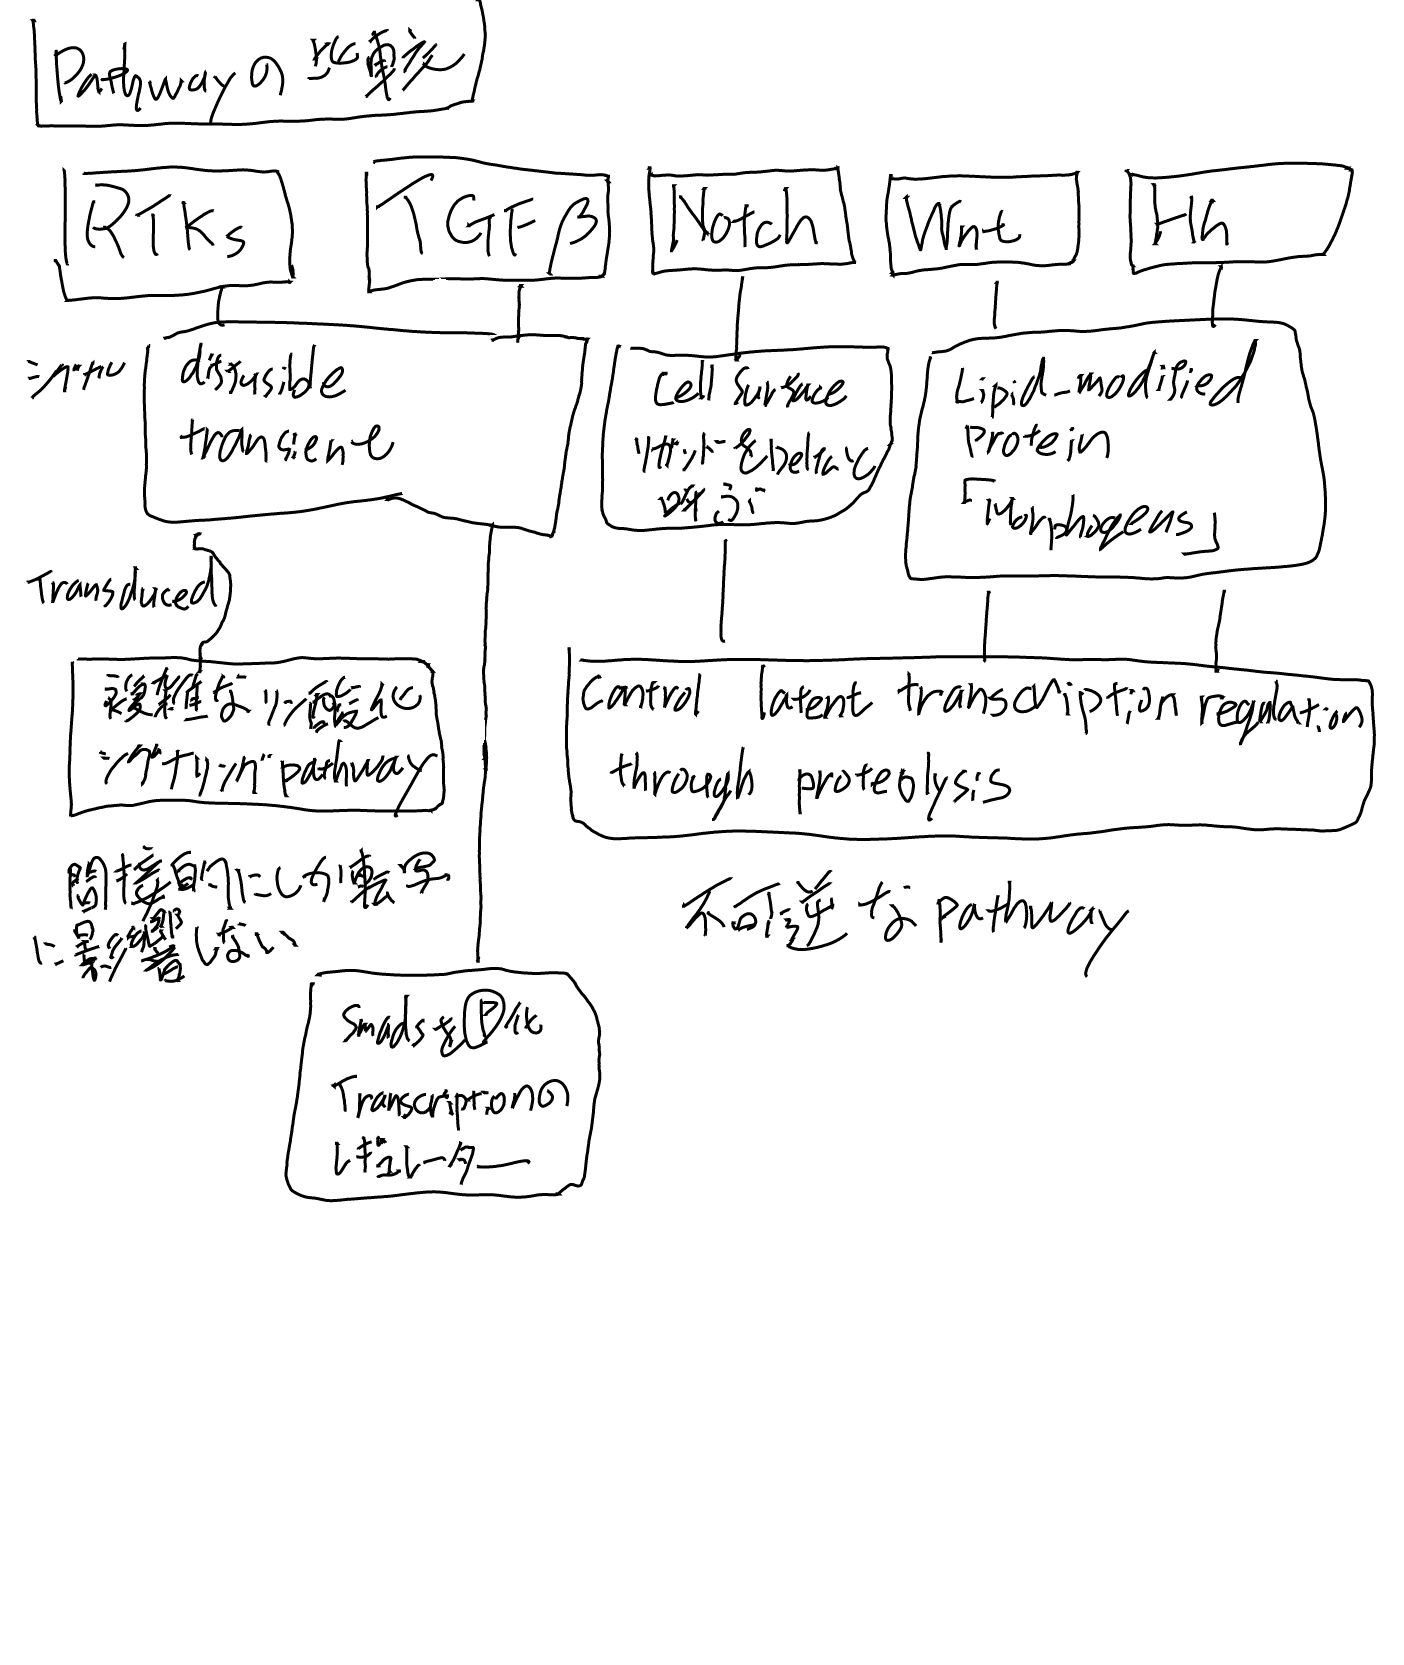 Pathwayの比較
RTKs
TGFβ
Notch
Wnt
Hh
シグナル
diffusible
transient
Cell surface
リガンドをDeltaと
呼ぶ
Lipid-modified
protein
「Morphogens」
Transduced
複雑なリン酸化
シグナリングpathway
Control latent transcription regulation
through proteolysis
間接的にしか転写
に影響しない
不可逆なpathway
SmadsをⓅ化
Transcriptionの
レギュレーター